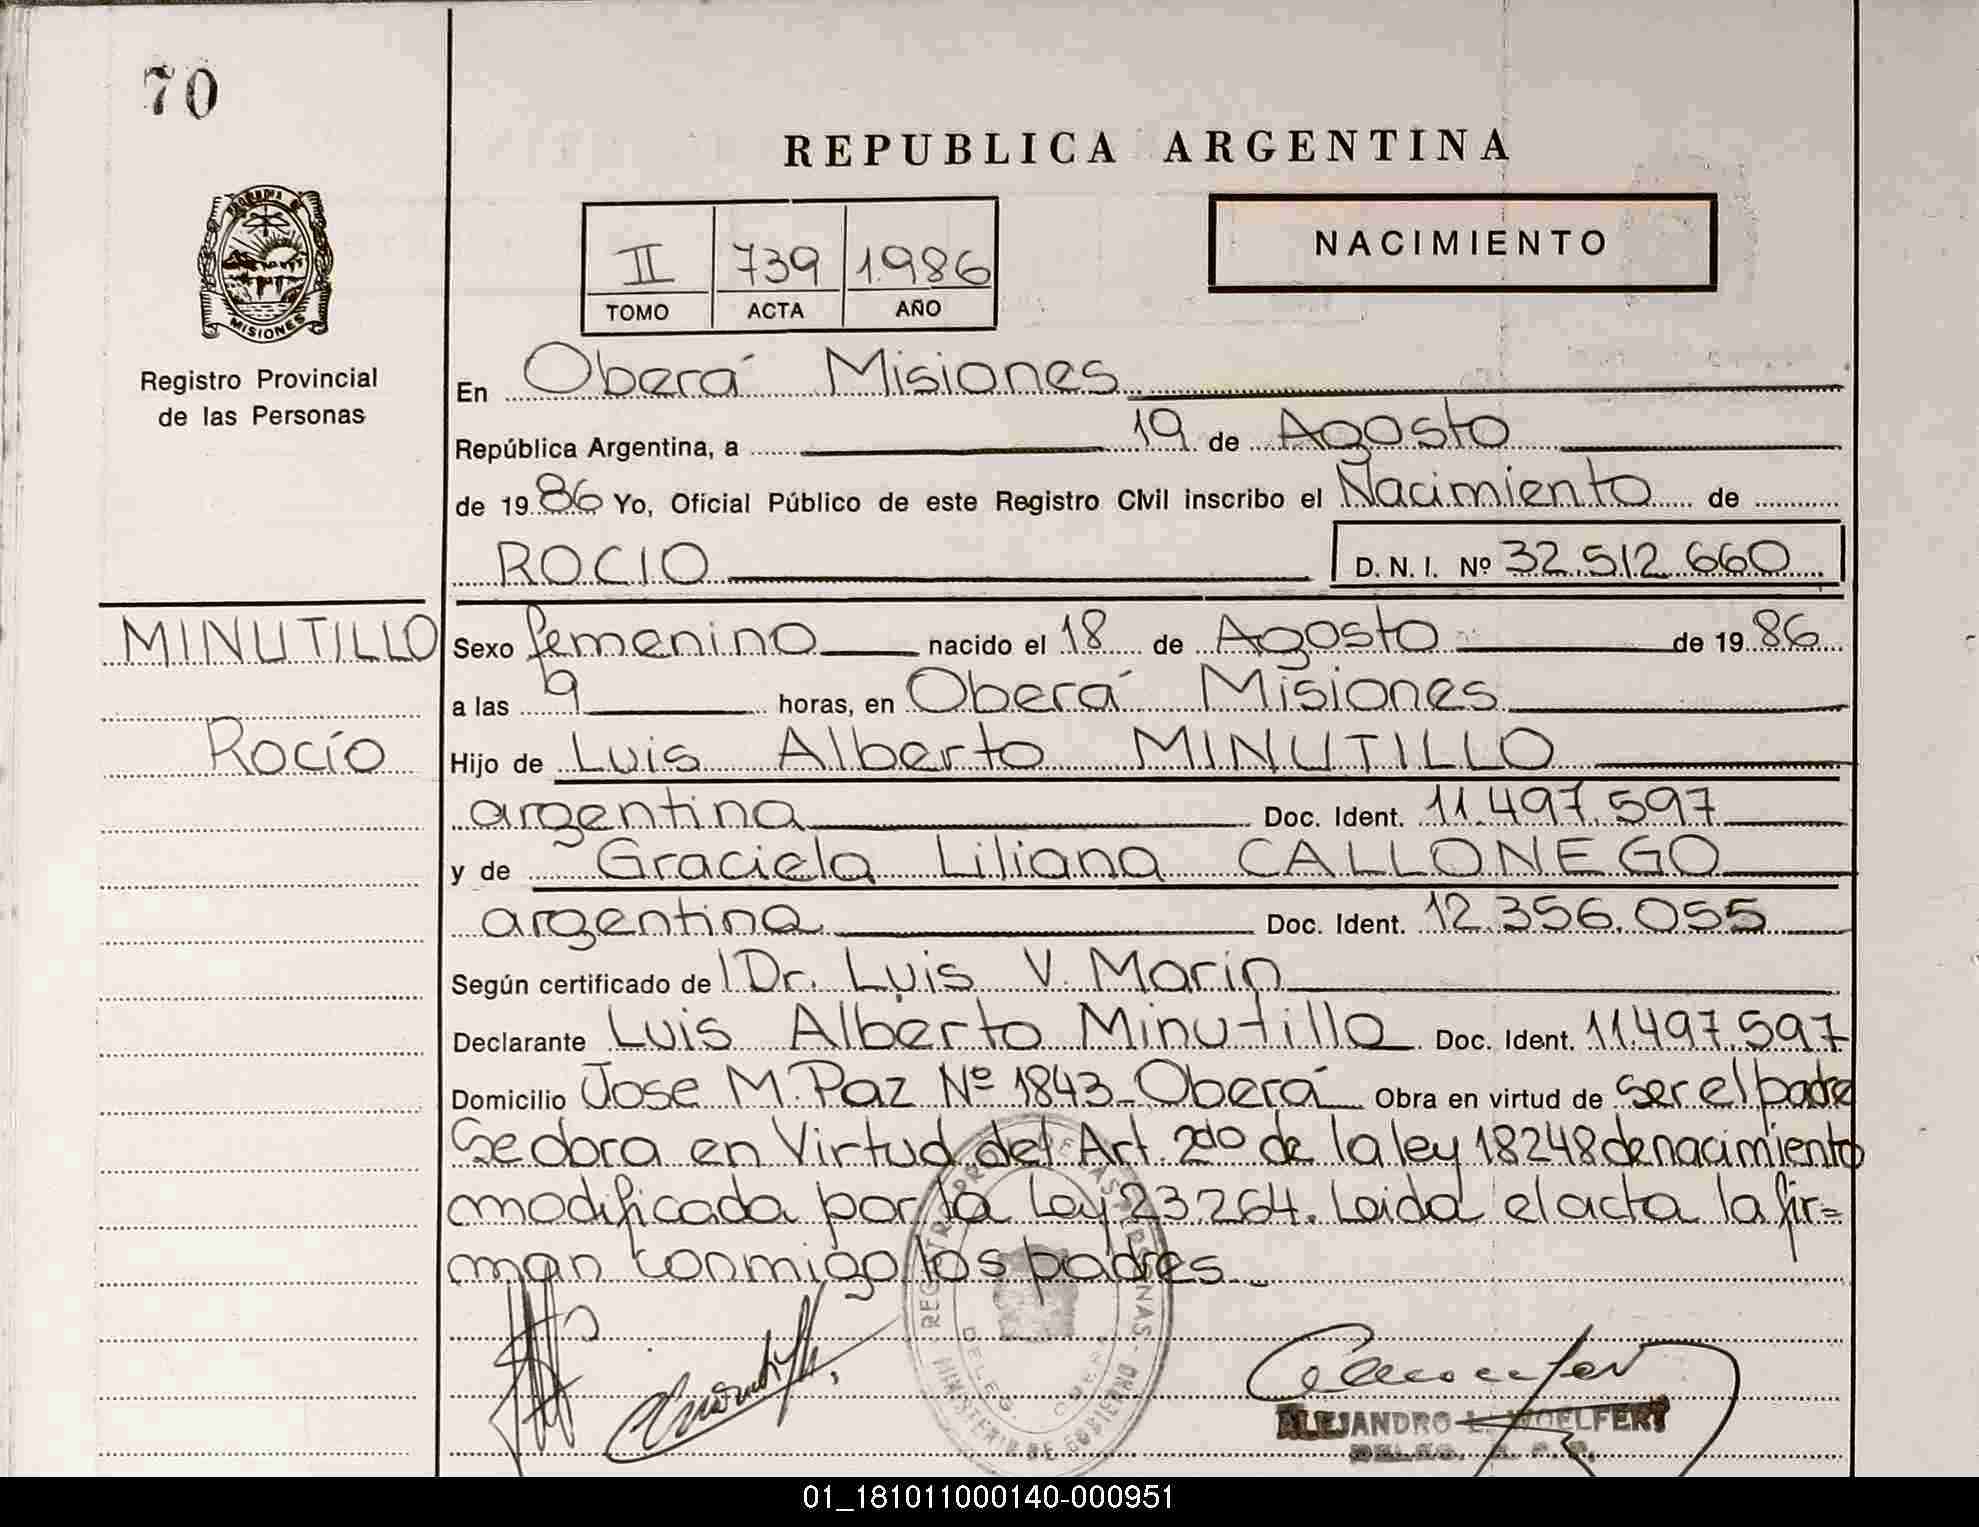 70
REPUBLICA ARGENTINA
II 739 1986
TOMO ACTA AÑO
NACIMIENTO
MISIONES
Registro Provincial
de las Personas
En Oberá Misiones
República Argentina, a 19 de Agosto
de 1986 Yo, Oficial Público de este Registro Civil inscribo el Nacimiento de
ROCIO D. N. I. Nº 32.512.660
MINUTILLO
Rocío
Sexo femenino nacido el 18 de Agosto de 1986
a las 9 horas, en Oberá Misiones
Hijo de Luis Alberto MINUTILLO
argentina Doc. Ident. 11.497.597
y de Graciela Liliana CALLONEGO
argentina Doc. Ident. 12.356.055
Según certificado de Dr. Luis V. Marin
Declarante Luis Alberto Minutillo Doc. Ident. 11.497.597
Domicilio Jose M. Paz Nº 1843-Oberá Obra en virtud de ser el padre
Se obra en Virtud del Art. 2do de la ley 18248 de nacimiento
modificada por la Ley 23.264. Leida el acta la fir=
man conmigo los padres
REGISTRO DE LAS PERSONAS
MINISTERIO DE GOBIERNO
DELEG.
ALEJANDRO L. WOELFERT
01_181011000140-000951